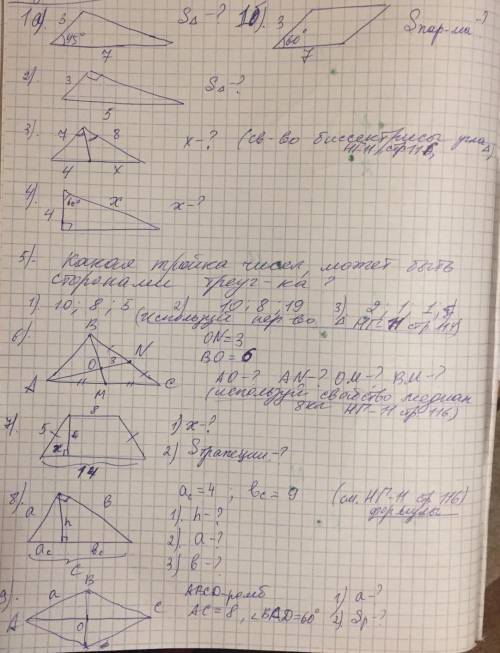 1а). 3 45° 7 S△ -? 1б). 3 60° 7 Sпар-ма -?
2). 3 5 S△ -?
3). 7 8 4 x x-? (св-во биссектрисы угла △)
НГ-Н стр 116
4). 4 60° x x-?
5). Какая тройка чисел, может быть
сторонами треуг-ка?
1). 10; 8; 5 2) 10; 8; 19 3) 2; 1; 1,5
(используй нер-во △ НГ-Н стр 114)
6). B N O 3 A M C ON=3
BO=6
AO-? AN-? OM-? BM-?
(используй свойство медиан
НГ-Н стр 116)
7). 8 5 x 14 1) x-?
2) Sтрапеции-?
8). a b h ac bc c ac=4; bc=9 (см. НГ-Н стр 116)
формулы
1). h-?
2). a-?
3) b-?
9). a B A O C ABCD-ромб 1) a-?
AC=8, ∠BAD=60° 2) Sр-?